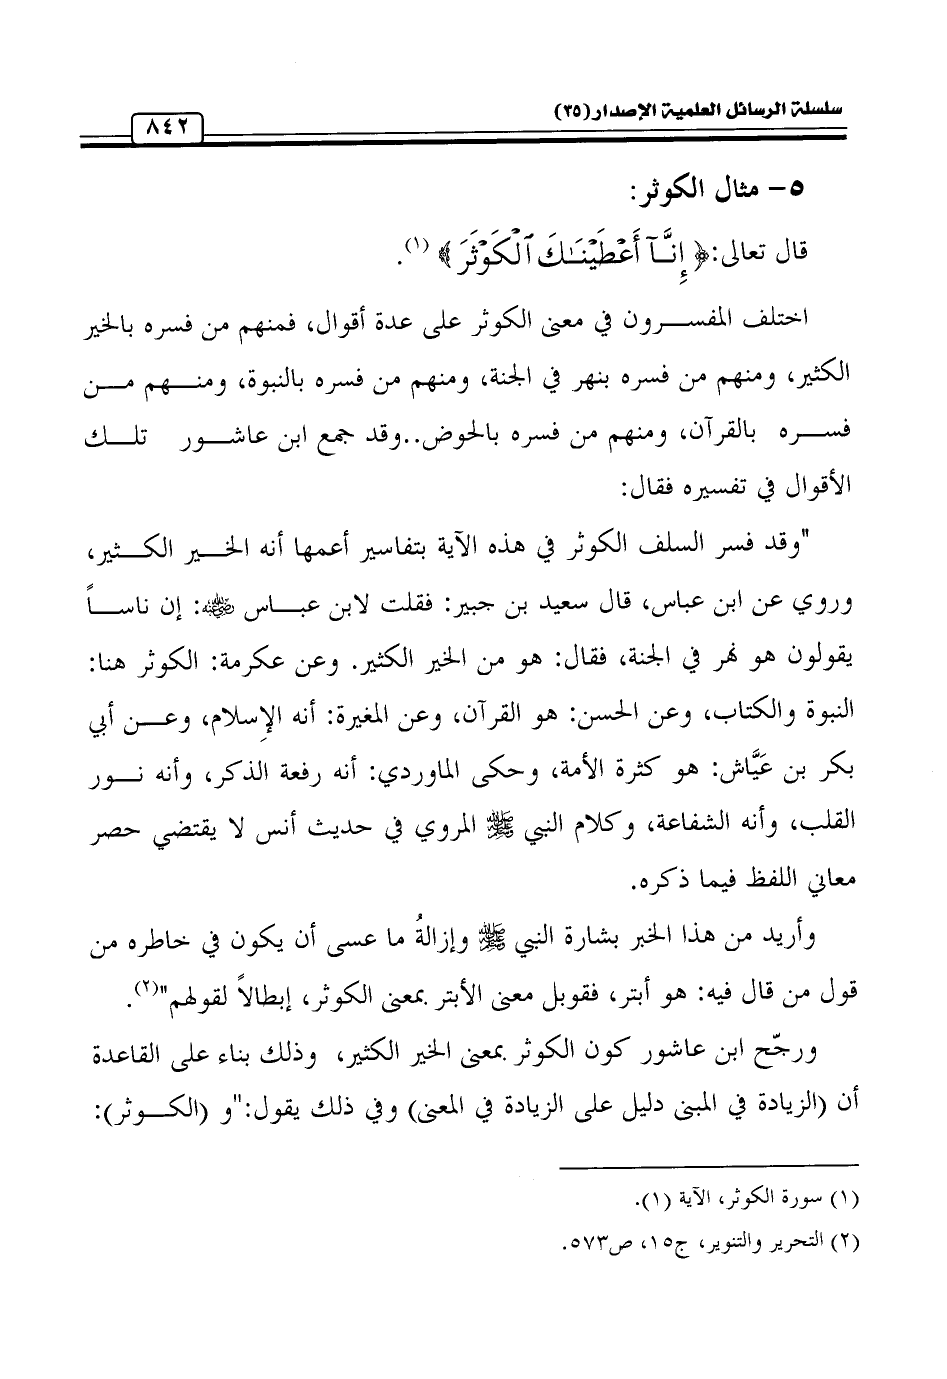 سلسلة الرسائل العلمية الإصدار (٣٥)
٨٤٢
٥- مثال الكوثر:
قال تعالى: ﴿ إِنَّآ أَعۡطَيۡنَٰكَ ٱلۡكَوۡثَرَ ﴾ (١).
اختلف المفسرون في معنى الكوثر على عدة أقوال، فمنهم من فسره بالخير
الكثير، ومنهم من فسره بنهر في الجنة، ومنهم من فسره بالنبوة، ومنهم من
فسره بالقرآن، ومنهم من فسره بالحوض..وقد جمع ابن عاشور تلك
الأقوال في تفسيره فقال:
"وقد فسر السلف الكوثر في هذه الآية بتفاسير أعمها أنه الخير الكثير،
وروي عن ابن عباس، قال سعيد بن جبير: فقلت لابن عباس رضي الله عنه: إن ناساً
يقولون هو نهر في الجنة، فقال: هو من الخير الكثير. وعن عكرمة: الكوثر هنا:
النبوة والكتاب، وعن الحسن: هو القرآن، وعن المغيرة: أنه الإسلام، وعن أبي
بكر بن عَيَّاش: هو كثرة الأمة، وحكى الماوردي: أنه رفعة الذكر، وأنه نور
القلب، وأنه الشفاعة، وكلام النبي ﷺ المروي في حديث أنس لا يقتضي حصر
معاني اللفظ فيما ذكره.
وأريد من هذا الخبر بشارة النبي ﷺ وإزالةُ ما عسى أن يكون في خاطره من
قول من قال فيه: هو أبتر، فقوبل معنى الأبتر بمعنى الكوثر، إبطالاً لقولهم"(٢).
ورجّح ابن عاشور كون الكوثر بمعنى الخير الكثير، وذلك بناء على القاعدة
أن (الزيادة في المبنى دليل على الزيادة في المعنى) وفي ذلك يقول:"و (الكوثر):
(١) سورة الكوثر، الآية (١).
(٢) التحرير والتنوير، ج١٥، ص٥٧٣.